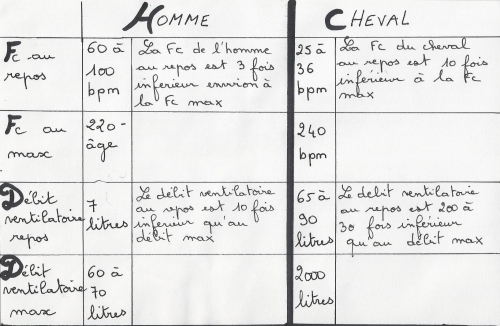 HOMME
CHEVAL
Fc au repos
60 à 100 bpm
La Fc de l'homme
au repos est 3 fois
inférieur environ à
la Fc max
25 à 36 bpm
La Fc du cheval
au repos est 10 fois
inférieur à la Fc
max
Fc au max
220 - âge
240 bpm
Débit ventilatoire repos
7 litres
Le débit ventilatoire
au repos est 10 fois
inférieur qu'au
débit max
65 à 90 litres
Le debit ventilatoire
au repos est 200 à
30 fois inférieur
qu'au débit max
Débit ventilatoire max
60 à 70 litres
2000 litres